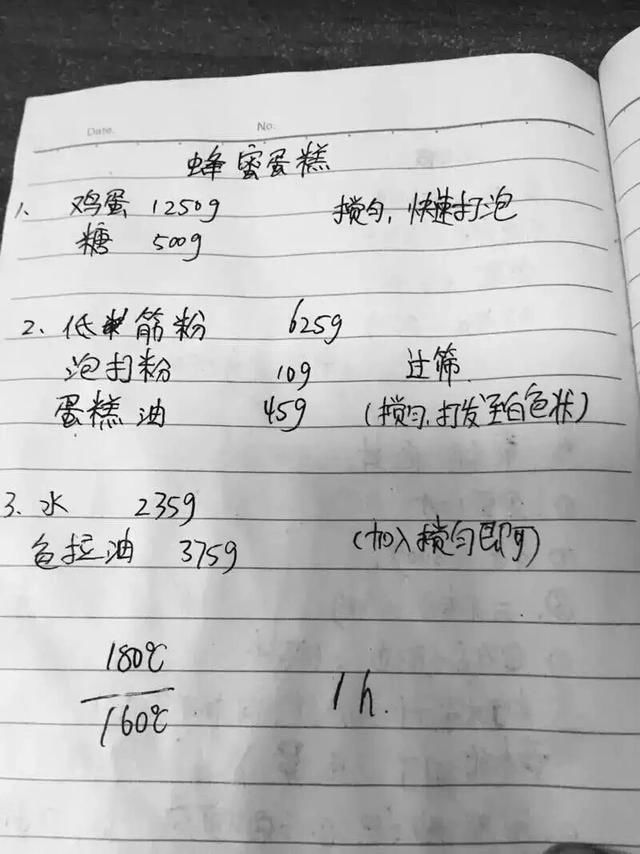 Date. No.
蜂蜜蛋糕
1、鸡蛋 1250g 搅匀,快速打泡
糖 500g
2、低筋粉 625g
泡打粉 10g 过筛
蛋糕油 45g (搅匀,打发至白色状)
3、水 235g
色拉油 375g (加入搅匀即可)
180℃
160℃ 1h.